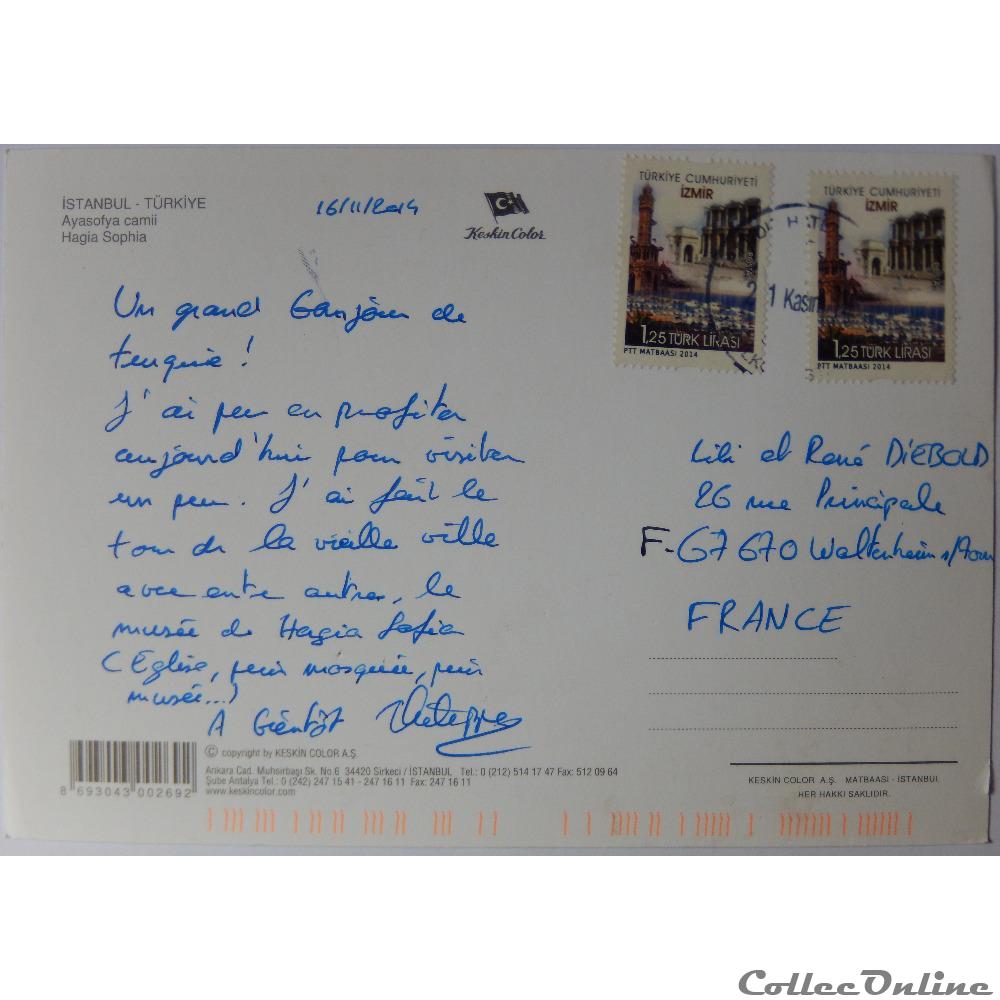 İSTANBUL - TÜRKİYE
Ayasofya camii
Hagia Sophia
16/11/2014
Keskin Color
TÜRKİYE CUMHURİYETİ
İZMİR
1,25 TÜRK LİRASI
PTT MATBAASI 2014
TÜRKİYE CUMHURİYETİ
İZMİR
1,25 TÜRK LİRASI
PTT MATBAASI 2014
21 Kasım
Un grand bonjour de
turquie !
J'ai peu en profiter
aujourd'hui pour visiter
un peu. J'ai fait le
tour de la vieille ville
avec entre autres, le
musée de Hagia Sofia
(Eglise, puis mosquée, puis
musée...)
A bientôt
Lili et René DIEBOLD
26 rue Principale
F-67670 Waltenheim s/Zorn
FRANCE
8 693043 002692
© copyright by KESKİN COLOR A.Ş.
Ankara Cad. Muhsirbaşı Sk. No.6 34420 Sirkeci / İSTANBUL Tel.: 0 (212) 514 17 47 Fax: 512 09 64
Şube Antalya Tel.: 0 (242) 247 15 41 - 247 16 11 Fax: 247 16 11
www.keskincolor.com
KESKİN COLOR A.Ş. MATBAASI - İSTANBUL
HER HAKKI SAKLIDIR.
CollecOnline